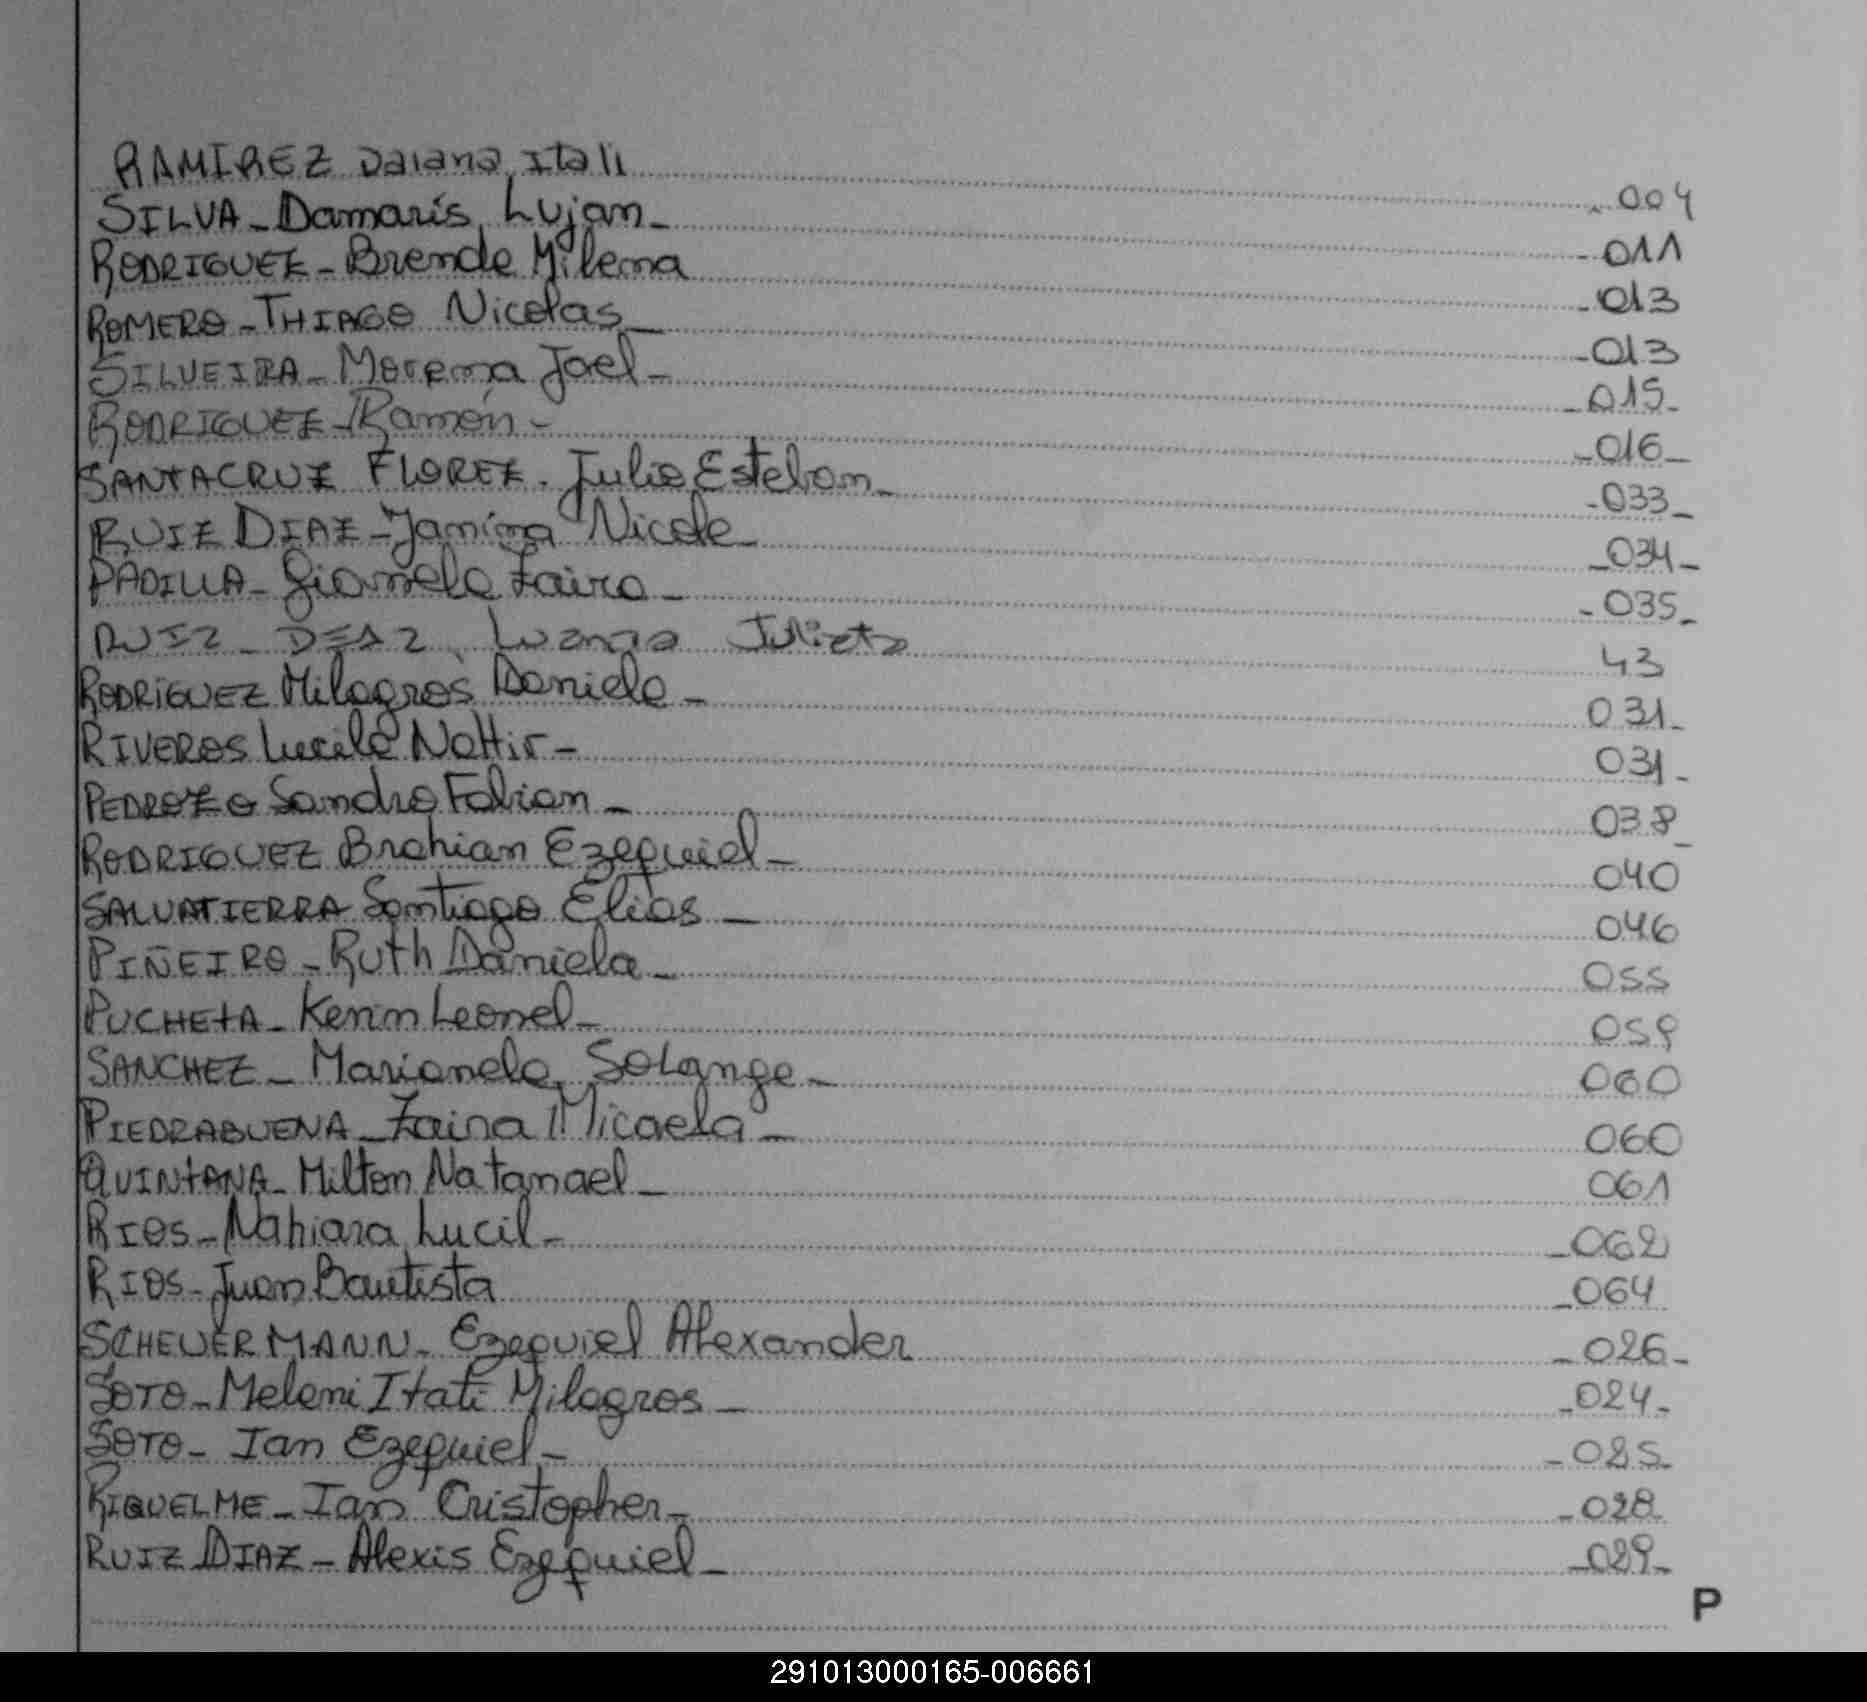 RAMIREZ Daiana Itali 004
SILVA - Damarís Lujan - 011
RODRIGUEZ - Brenda Milena - 013
ROMERO - THIAGO Nicolas - 013
SILVEIRA - Morena Jael - 015 -
RODRIGUEZ - Ramón - - 016 -
SANTACRUZ FLOREZ. Julio Esteban - - 033 -
RUIZ DIAZ - Janina Nicole - - 034 -
PADILLA - Gianela Zaira - - 035 -
RUIZ - DIAZ Luania Julieta 43
RODRÍGUEZ Milagros Daniela - 031 -
RIVEROS Lucila Nattir - 031 -
PEDROZO Sandro Fabian - 038 -
RODRIGUEZ Brahian Ezequiel - 040
SALVATIERRA Santiago Elias - 046
PIÑEIRO - Ruth Daniela - 055
PUCHETA - Kevin Leonel - 059
SANCHEZ - Marianela Solange - 060
PIEDRABUENA - Zaira Micaela - 060
QUINTANA - Milton Natanael - 061
RIOS - Nahiara Lucil - - 062
RIOS - Juan Bautista - 064
SCHEUERMANN - Ezequiel Alexander - 026 -
SOTO - Meleni Itatí Milagros - - 024 -
SOTO - Ian Ezequiel - - 025 -
RIQUELME - Ian Cristopher - - 028
RUIZ DIAZ - Alexis Ezequiel - - 029 -
P
291013000165-006661